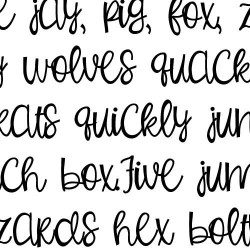 e jay, pig, fox, z
y wolves quack
eats quickly jum
ch box.Five jum
zards hex bolt